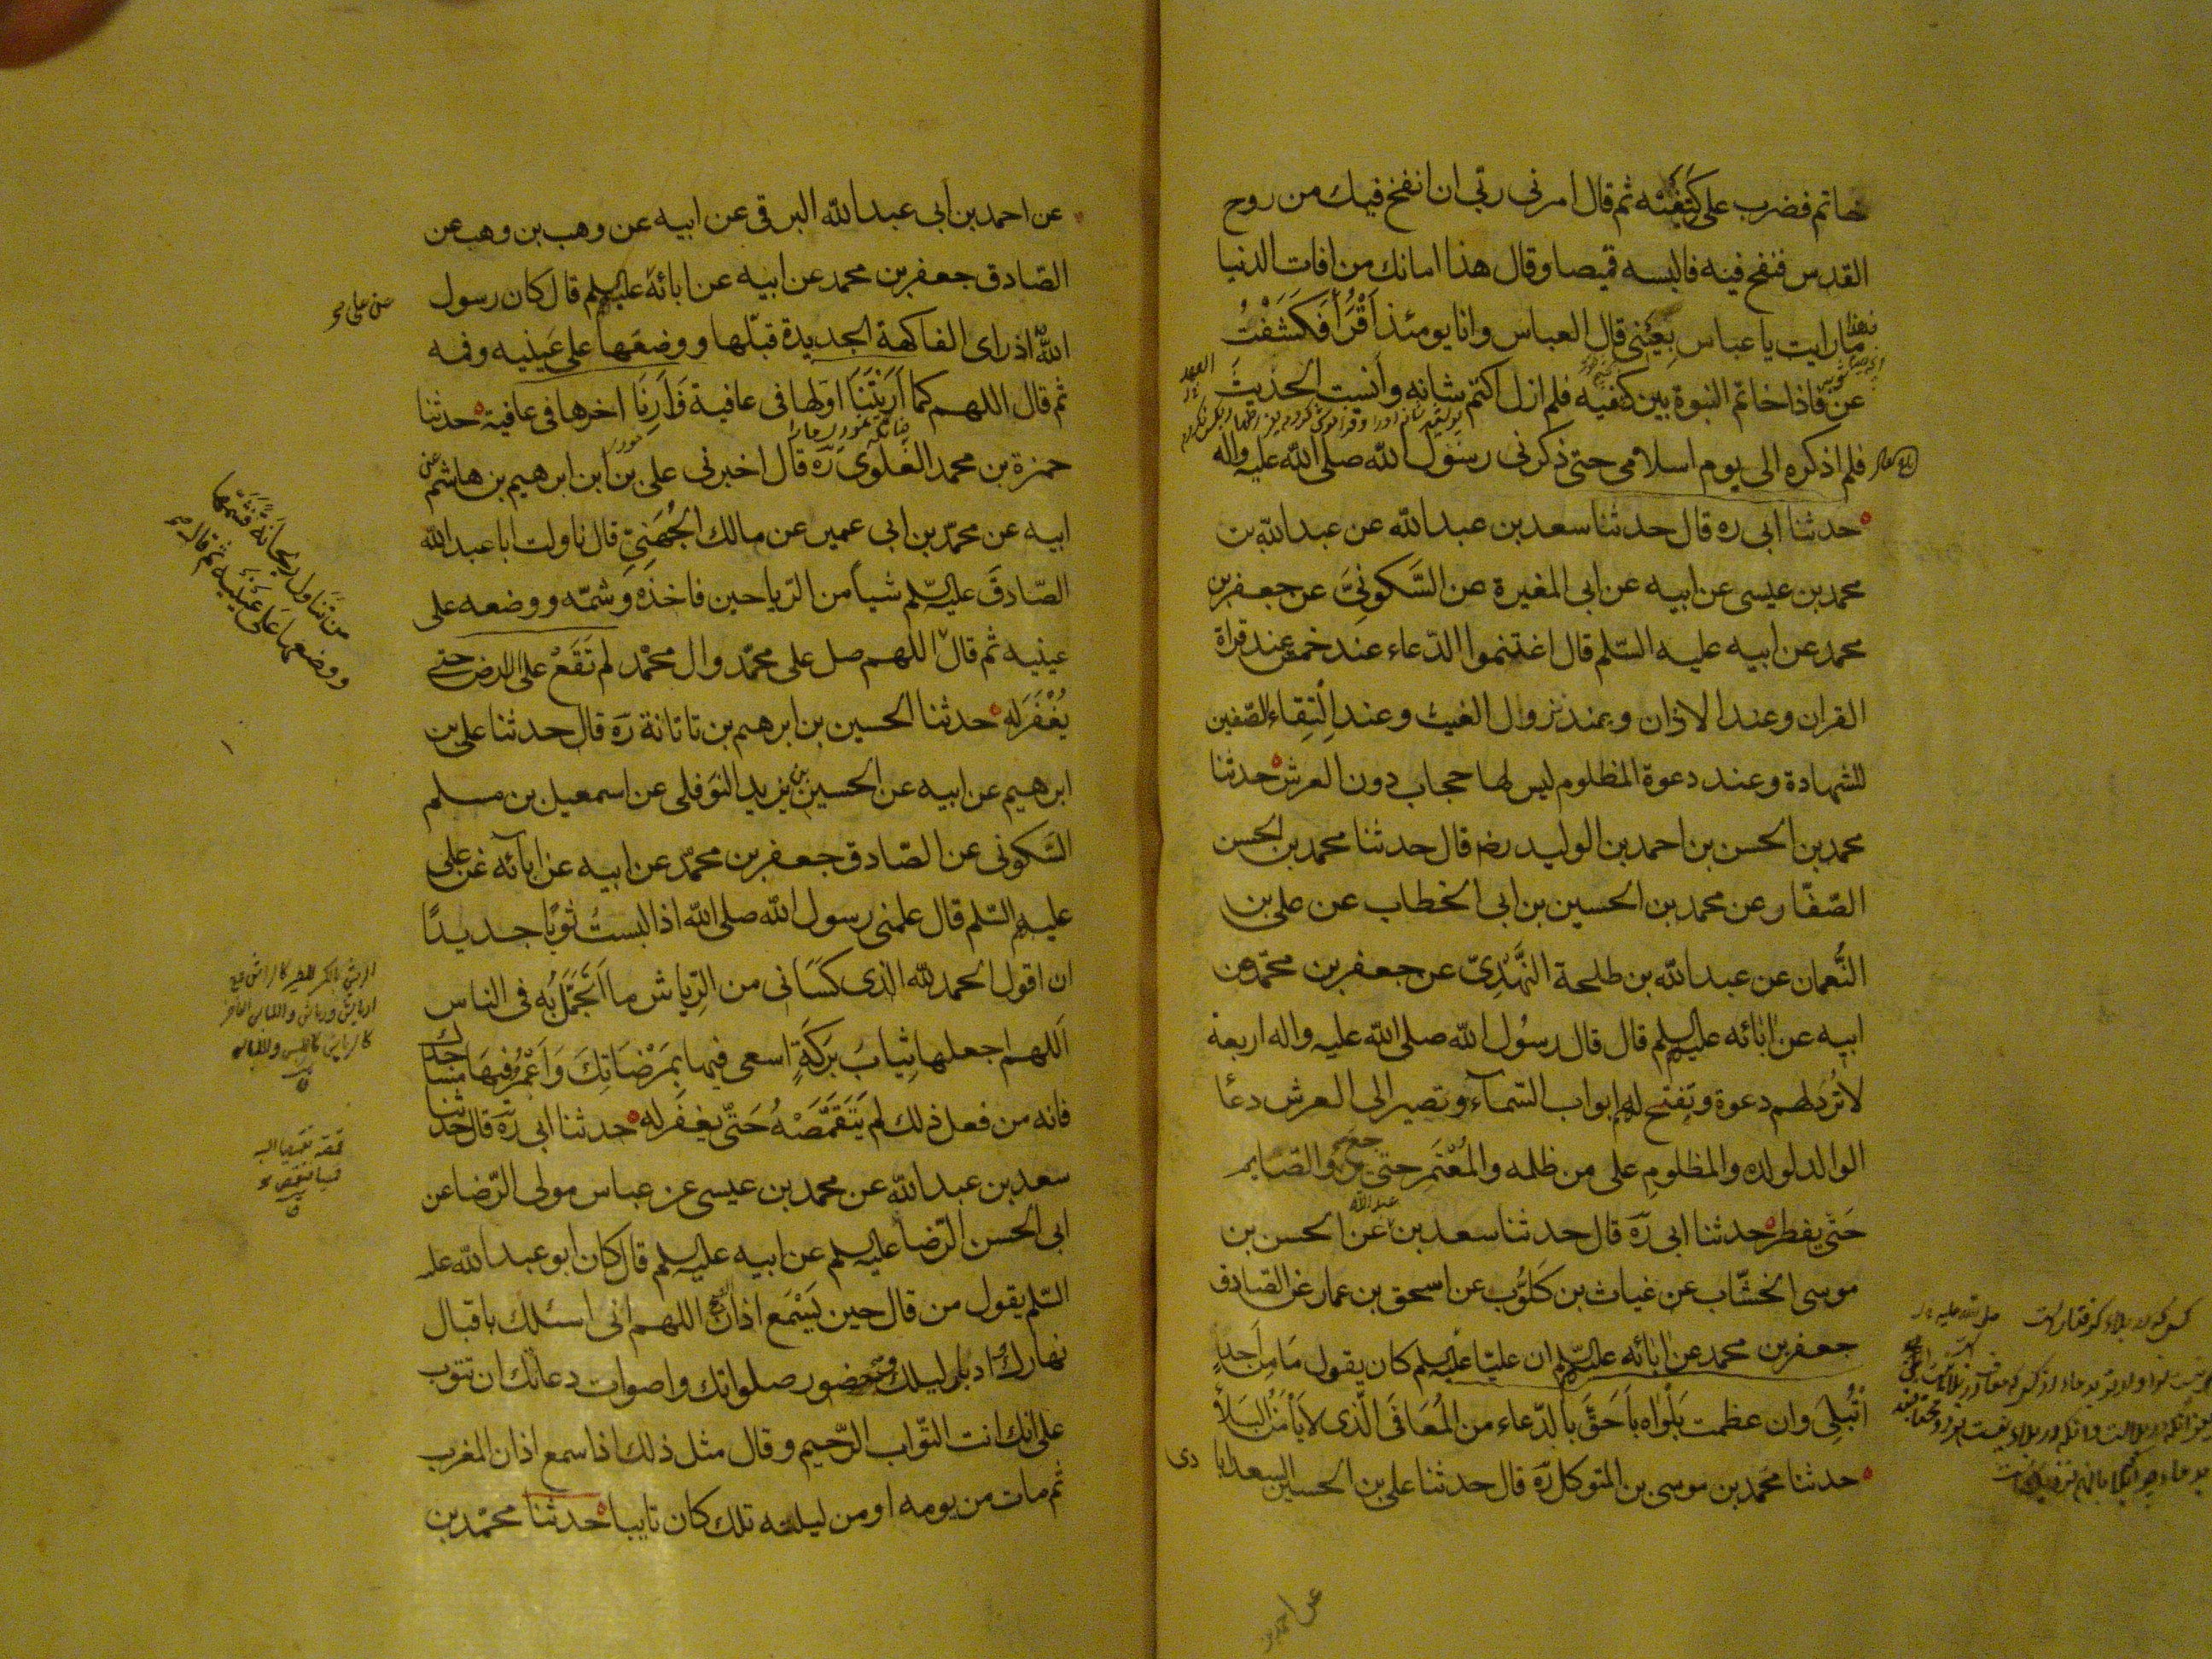 خاتم فضرب على كتفيه ثم قال امرنى ربى ان انفخ فيك من روح
القدس فنفخ فيه فالبسه قميصا وقال هذا امانك من افات الدنيا
فهذا ما رايت يا عباس بعينى قال العباس وانا يومئذ اقرأ فكشفت
عن فاذا خاتم النبوة بين كتفيه فلم ازل اكتم شانه وأنسيت الحديث
فلم اذكره الى يوم اسلامى حتى ذكرنى رسول الله صلى الله عليه واله
حدثنا ابى ره قال حدثنا سعد بن عبد الله عن عبد الله بن
محمد بن عيسى عن ابيه عن ابى المغيرة عن السَّكونِىّ عن جعفر بن
محمد عن ابيه عليه السّلم قال اغتنموا الدّعاء عند خمس عند قراة
القران وعند الاذان وعند نزول الغيث وعند اِلْتِقاء الصّفين
للشهادة وعند دعوة المظلوم ليس لها حجاب دون العرش حدثنا
محمد بن الحسن بن احمد بن الوليد رضه قال حدثنا محمد بن الحسن
الصّفّار عن محمد بن الحسين بن ابى الخطاب عن على بن
النُّعمان عن عبد الله بن طلحة النَّهْدِىّ عن جعفر بن محمّد عن
ابيه عن ابائه عليهم السلم قال قال رسُول الله صلى الله عليه واله اربعة
لا تُرَد لهم دعوة وتفتح لهم ابواب السّمآء وتصير الى العرش دعاء
الوالد لولده والمظلومِ على من ظلمه والمُعْتَمِر حتى يرجع والصّايم
حَتّى يفطر حدثنا ابى رَه قال حدثنا سعد بن عبد الله عن الحسن بن
موسى الخشّاب عن غياث بن كَلُّوب عن اسحق بن عمار عن الصّادق
جعفر بن محمد عن ابائه عليهم السلم ان عليّا عليه السلم كان يقول مَا مِن اَحدٍ
اُبْتُلِىَ وان عظمت بَلْواه باَحَقَّ بالدّعاء من المُعَافَى الّذى لا يَأمَنُ البَلاءَ
حدثنا محمد بن موسى بن المتوكل رَه قال حدثنا على بن الحسين السعدابادى
عن احمد بن
عن احمد بن ابى عبد الله البرقى عن ابيه عن وهب بن وهب عن
الصّادق جعفر بن محمد عن ابيه عن ابائه عليهم السلم قال كان رسول
اللهِ اذ راى الفاكهة الجديدة قبّلها ووضعَها على عَينيه وفمه
ثم قال اللهم كما اَرَيْتَنَا اوّلها فى عافية فَاَرِنَا اخرها فى عافية حدثنا
حمزة بن محمد العَلوى رَه قال اخبرنى على بن ابن ابرهيم بن هاشم عن
ابيه عن محمّد بن ابى عمير عن مالك الجُهَنِىّ قال ناولت ابا عبد الله
الصّادقَ عليه السّلم شياً من الرّياحين فاخذه وَشمّه ووضعه على
عينيه ثم قال اللهم صل على محمّد وال محمّد لم تَقَعْ على الارض حتى
يُغْفَرَ له حدثنا الحسين بن ابرهيم بن تاتانة رَه قال حدثنا على بن
ابرهيم عن ابيه عن الحسين بن يزيد النوفلى عن اسمعيل بن مسلم
السّكونى عن الصّادق جعفر بن محمّد عن ابيه عن ابآئه عن على
عليهم السّلم قال علمنى رسول الله صلى الله اذا لبستُ ثَوبًا جديدًا
ان اقول الحمد لله الذى كَسَانى من الرِّياش ما اَتَجَمَّلُ به فى الناس
اَللهم اجعلها ثِيابَ بَرَكَةٍ اسعى فيها بِمَرْضَاتِكَ وَاَعْمُرُ فيهَا مَسَاجدك
فانه من فعل ذلك لم يَتَقَمَّصْهُ حَتّى يغفَر له حدثنا ابى رَه قال حدثنا
سعد بن عبد الله عن محمد بن عيسى عن عباس مولى الرّضا عن
ابى الحسن الرّضا عليه السلم عن ابيه عليه السلم قال كان ابو عبد الله عليه
السّلم يقول من قال حين يَسْمَع اذان اللهم انى اسئلك باقبال
نهارك وادبار ليلك وحضور صلواتك واصوات دعاتك ان تتوب
على انك انت التّواب الرّحيم وقال مثل ذلك اذا سمع اذان المغرب
ثم مات من يومه او من ليلته تلك كان تايبا حدثنا محمّد بن
من تَناول ريحانةً فشَمّها
ووضعها على عَينيه ثم قال